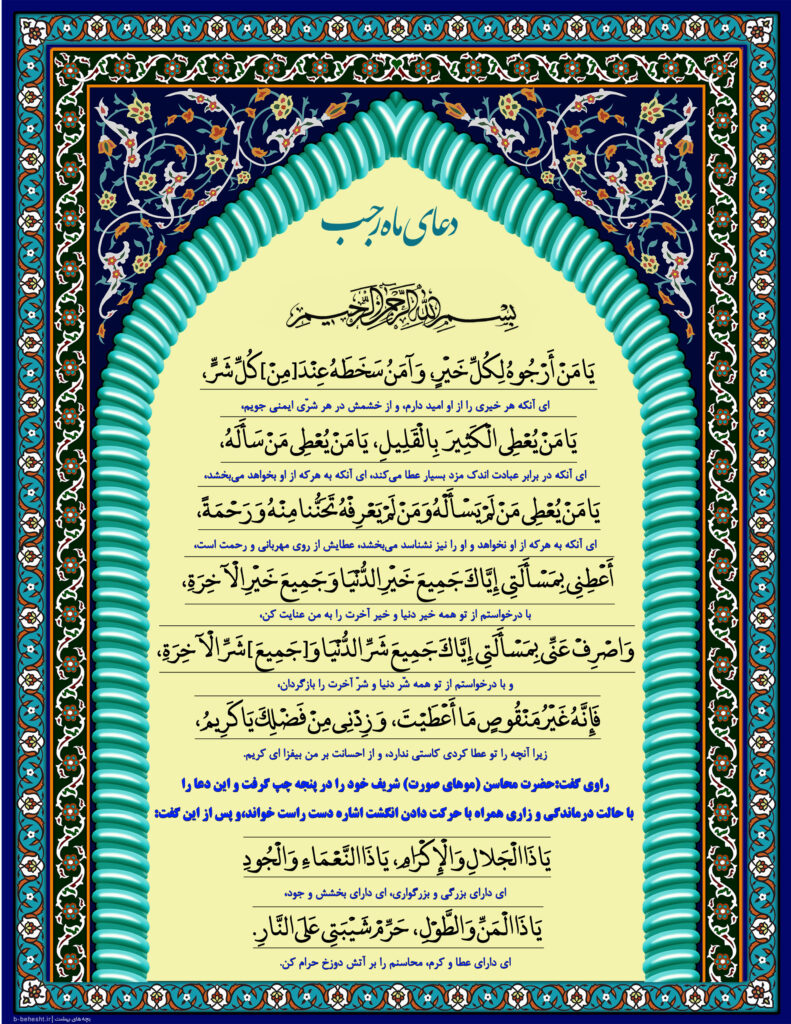 دعای ماه رجب
بِسْمِ اللَّهِ الرَّحْمَنِ الرَّحِيمِ
يَا مَنْ أَرْجُوهُ لِكُلِّ خَيْرٍ، وَ آمَنُ سَخَطَهُ عِنْدَ [مِنْ] كُلِّ شَرٍّ،
ای آنکه هر خیری را از او امید دارم، و از خشمش در هر شرّی ایمنی جویم،
يَا مَنْ يُعْطِي الْكَثِيرَ بِالْقَلِيلِ، يَا مَنْ يُعْطِي مَنْ سَأَلَهُ،
ای آنکه در برابر عبادت اندک مزد بسیار عطا می‌کند، ای آنکه به هرکه از او بخواهد می‌بخشد،
يَا مَنْ يُعْطِي مَنْ لَمْ يَسْأَلْهُ وَ مَنْ لَمْ يَعْرِفْهُ تَحَنُّنا مِنْهُ وَ رَحْمَةً،
ای آنکه به هرکه از او نخواهد و او را نیز نشناسد می‌بخشد، عطایش از روی مهربانی و رحمت است،
أَعْطِنِي بِمَسْأَلَتِي إِيَّاكَ جَمِيعَ خَيْرِ الدُّنْيَا وَ جَمِيعَ خَيْرِ الْآخِرَةِ،
با درخواستم از تو همه خیر دنیا و خیر آخرت را به من عنایت کن،
وَ اصْرِفْ عَنِّي بِمَسْأَلَتِي إِيَّاكَ جَمِيعَ شَرِّ الدُّنْيَا وَ [جَمِيعَ] شَرِّ الْآخِرَةِ،
و با درخواستم از تو همه شّر دنیا و شرّ آخرت را بازگردان،
فَإِنَّهُ غَيْرُ مَنْقُوصٍ مَا أَعْطَيْتَ، وَ زِدْنِي مِنْ فَضْلِكَ يَا كَرِيمُ،
زیرا آنچه را تو عطا کردی کاستی ندارد، و از احسانت بر من بیفزا ای کریم.
راوی گفت:حضرت محاسن (موهای صورت) شریف خود را در پنجه چپ گرفت و این دعا را
با حالت درماندگی و زاری همراه با حرکت دادن انگشت اشاره دست راست خواند،و پس از این گفت:
يَا ذَا الْجَلالِ وَ الْإِكْرَامِ، يَا ذَا النَّعْمَاءِ وَ الْجُودِ
ای دارای بزرگی و بزرگواری، ای دارای بخشش و جود،
يَا ذَا الْمَنِّ وَ الطَّوْلِ، حَرِّمْ شَيْبَتِي عَلَى النَّارِ.
ای دارای عطا و کرم، محاسنم را بر آتش دوزخ حرام کن.
بچه های بهشت | b-behesht.ir